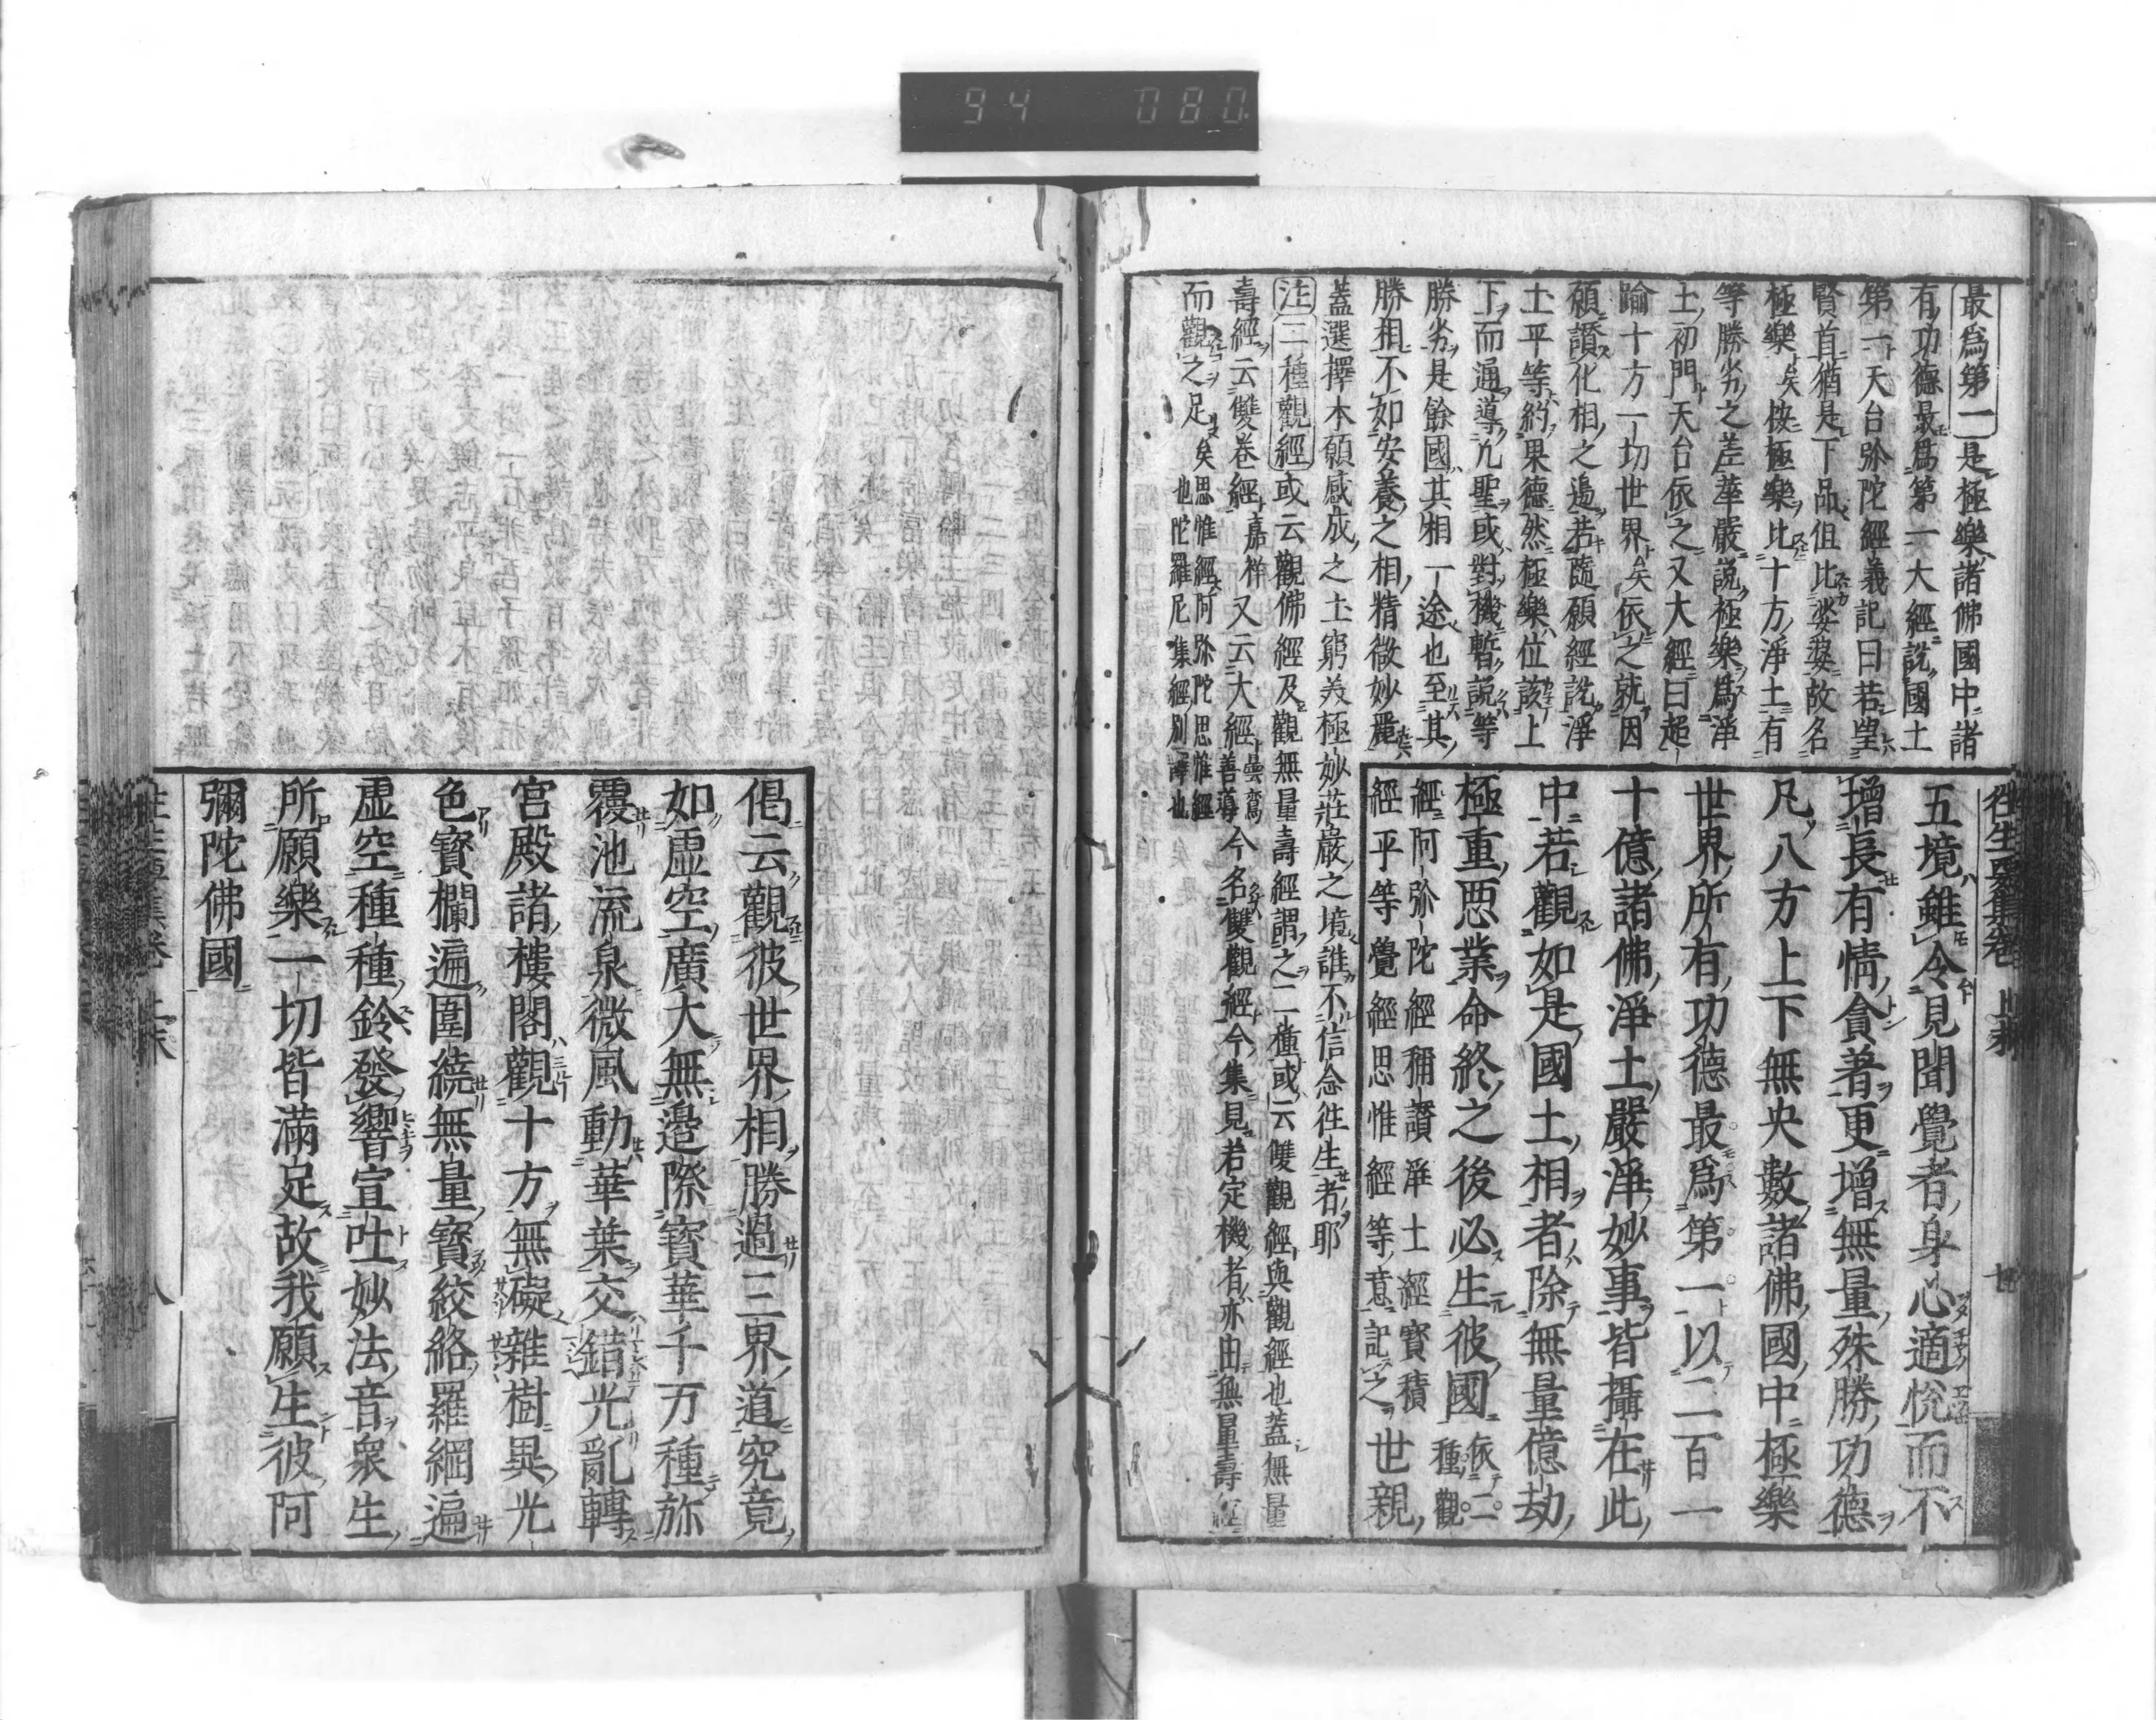 94 080
往生要集卷 上末 廿
五境雖令見聞覺者身心適悅而不
增長有情貪著更增無量殊勝功德
凡八方上下無央數諸佛國中極樂
世界所有功德最爲第一以二百一
十億諸佛淨土嚴淨妙事皆攝在此
中若觀如是國土相者除無量億劫
極重惡業命終之後必生彼國依二種觀
經阿彌陀經稱讚淨土經寶積
經平等覺經思惟經等意記之世親
最爲第一是極樂諸佛國中諸
有功德最爲第一大經說國土
第一天台弥陀經義記曰若望
賢首猶是下品但比娑婆故名
極樂矣按極樂比十方淨土有
等勝劣之差華嚴說極樂爲淨
土初門天台依之又大經曰超
踰十方一切世界矣依之就因
願讚化相之邊若隨願經說淨
土平等約果德然極樂位該上
下而通導九聖或對機暫說等
勝劣是餘國其相一途也至其
勝相不如安養之相精微妙麗
蓋選擇本願感成之土窮美極妙莊嚴之境誰不信念往生者耶
注二種觀經或云觀佛經及觀無量壽經謂之二種或云雙觀經與觀經也蓋無量
壽經云雙卷經嘉祥又云大經曇鸞善導今名雙觀經今集見若定機者亦由無量壽經
而觀之足矣思惟經阿弥陀思惟經也陀羅尼集經別譯也
偈云觀彼世界相勝過三界道究竟
如虛空廣大無邊際寶華千万種弥
覆池流泉微風動華葉交錯光亂轉
宮殿諸樓閣觀十方無礙雜樹異光
色寶欄遍圍繞無量寶絞絡羅網遍
虛空種種鈴發響宣吐妙法音衆生
所願樂一切皆滿足故我願生彼阿
彌陀佛國
往生要集卷 上末 八